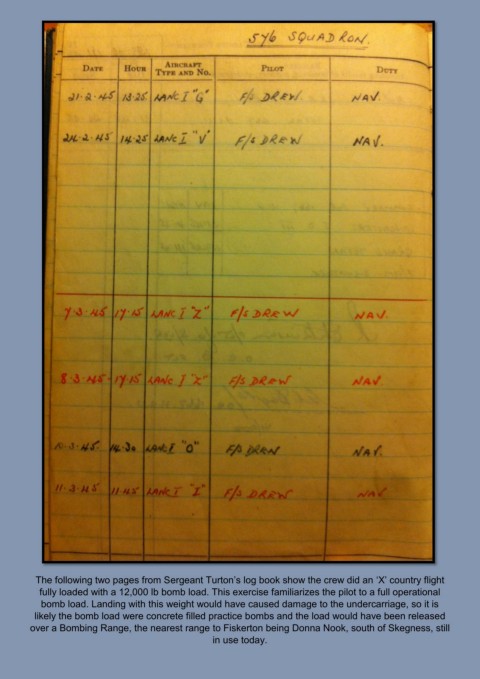 576 SQUADRON.
DATE HOUR AIRCRAFT TYPE AND NO. PILOT DUTY
21·2·45 13·25 LANC I "G" F/S DREW. NAV.
24·2·45 14·25 LANC I "V" F/S DREW NAV.
7·3·45 17·15 LANC I "Z" F/S DREW NAV.
8·3·45 17·15 LANC I "Z" F/S DREW NAV.
10·3·45 14·30 LANC I "O" F/S DREW NAV.
11·3·45 11·45 LANC I "I" F/S DREW NAV
The following two pages from Sergeant Turton's log book show the crew did an 'X' country flight
fully loaded with a 12,000 lb bomb load. This exercise familiarizes the pilot to a full operational
bomb load. Landing with this weight would have caused damage to the undercarriage, so it is
likely the bomb load were concrete filled practice bombs and the load would have been released
over a Bombing Range, the nearest range to Fiskerton being Donna Nook, south of Skegness, still
in use today.